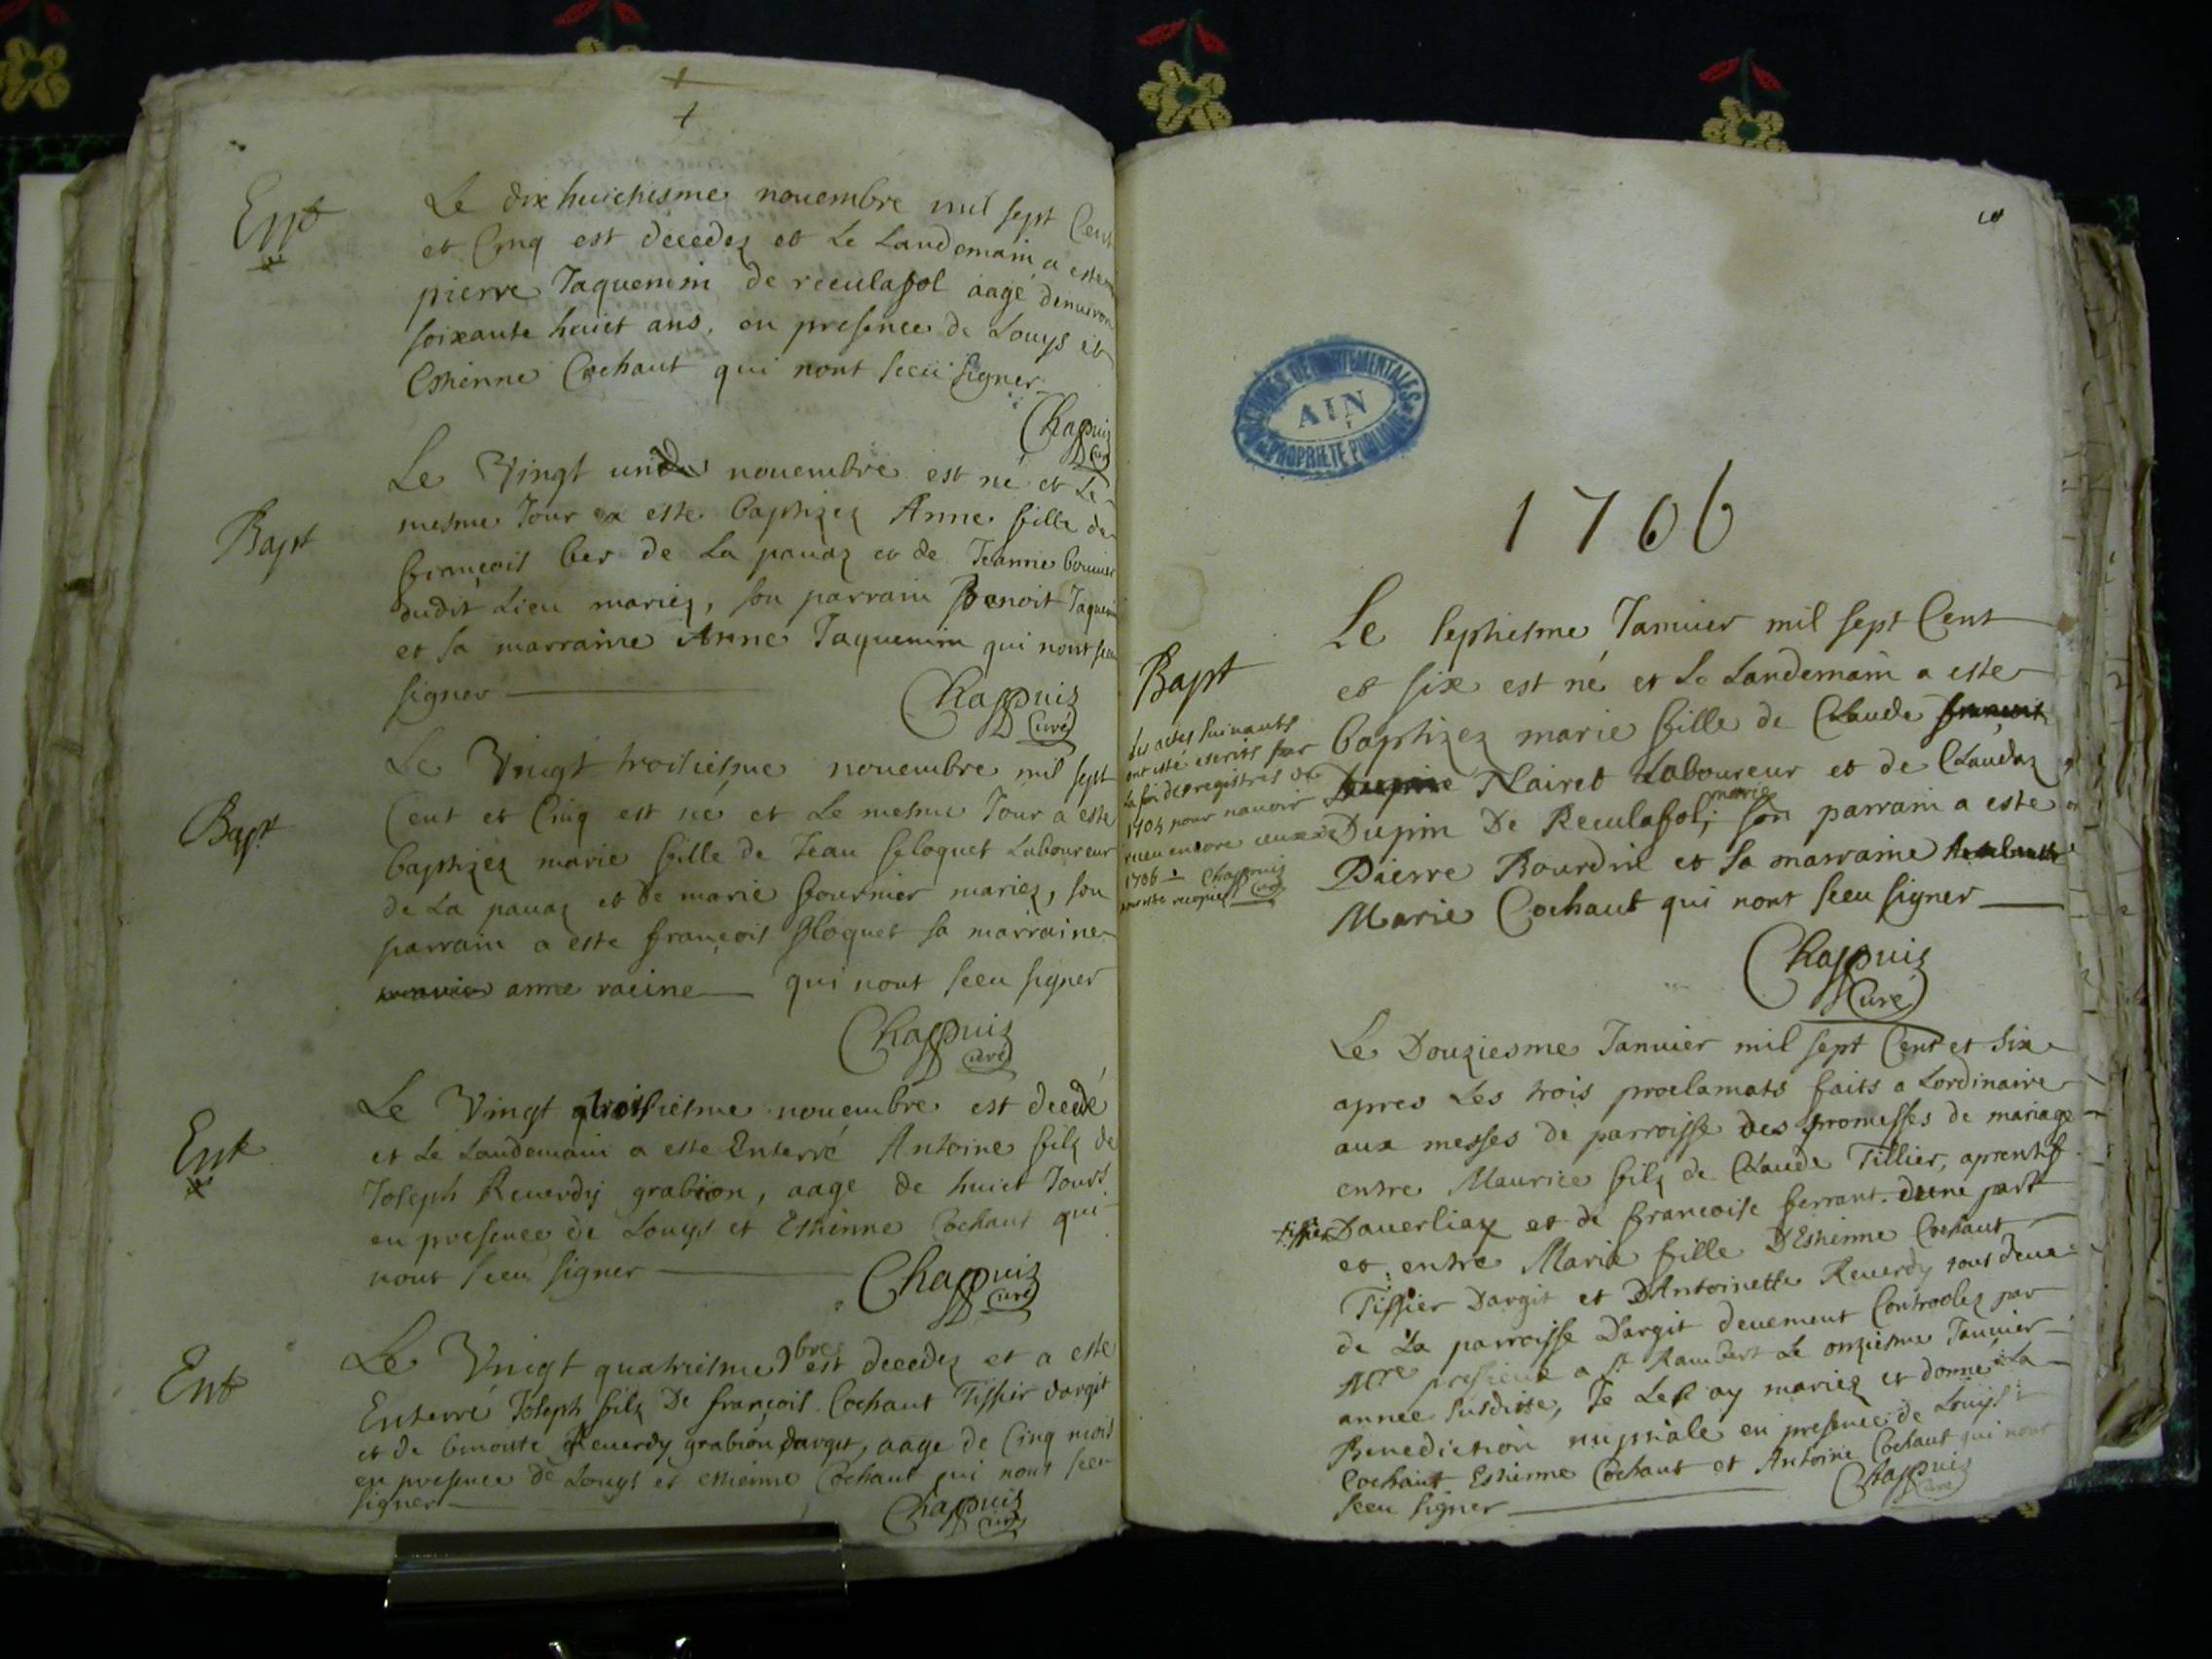 Ent
Le dix huictiesme nouembre mil sept Cent
et Cinq est decedez et Le Landemain a este
pierre Jaquemin de reculafol aagé denuiron
soixante huict ans, en presence de Louys et
Estienne Cochaut qui nont sceu signer
Chappuiz
Curé
Bapt
Le Vingt un nouembre est né et Le
mesme Jour a este baptizez Anne fille de
françois ber de La pauaz et de Jeanne
dudit Lieu mariez, son parrain Benoit Jaquemin
et sa marraine Anne Jaquemin qui nont sceu
signer
Chappuiz
Curé
Bapt
Le Vingt troisiesme nouembre mil sept
Cent et Cinq est né et Le mesme Jour a este
baptizez marie fille de Jean floquet Laboureur
de La pauaz et de marie fournier mariez, son
parrain a este françois floquet sa marraine
anne racine qui nont sceu signer
Chappuiz
Curé
Ent
Le Vingt troisiesme nouembre est decedé
et Le Landemain a este Enterré Antoine filz de
Joseph Reuerdy grabion, aage de huict Jours
en presence de Louys et Estienne Cochaut qui
nont sceu signer
Chappuiz
Curé
Ent
Le Vingt quatriesme 9bre est decedez et a este
Enterré Joseph filz De françois Cochaut Tissier dargit
et de benoite Reuerdy grabion dargit, aage de Cinq mois
en presence de Louys et estienne Cochaut qui nont sceu
signer
Chappuiz
Curé
ARCHIVES DEPARTEMENTALES
AIN
PROPRIETE PUBLIQUE
1706
Bapt
Les actes suiuants
ont esté escrits sur
la fin des registres de
1705 pour nauoir
receu encore ceux de
1706 Chappuiz
Curé
Le septiesme Januier mil sept Cent
et six est né et Le Landemain a este
baptizez marie fille de Claude françois
Dupin Nairet Laboureur et de Claudaz
Dupin De Reculafol, mariez son parrain a este
Pierre Bourdin et sa marraine
Marie Cochaut qui nont sceu signer
Chappuiz
Curé
Le Douziesme Januier mil sept Cent et six
apres Les trois proclamats faits a Lordinaire
aux messes de parroisse des promesses de mariage
entre Maurice filz de Claude Tillier, aprentif
tissier Dauerliaz et de francoise ferrant. dune part
et entre Marie fille DEstienne Cochaut
Tissier Dargit et DAntoinette Reuerdy tous deux
de La parroisse Dargit deuement Controolez par
Mre a St Rambert Le onziesme Januier
annee susditte, Je Les ay mariez et donné La
Benediction nuptiale en presence de Louys
Cochaut Estienne Cochaut et Antoine Cochaut qui nont
sceu signer
Chappuiz
Curé